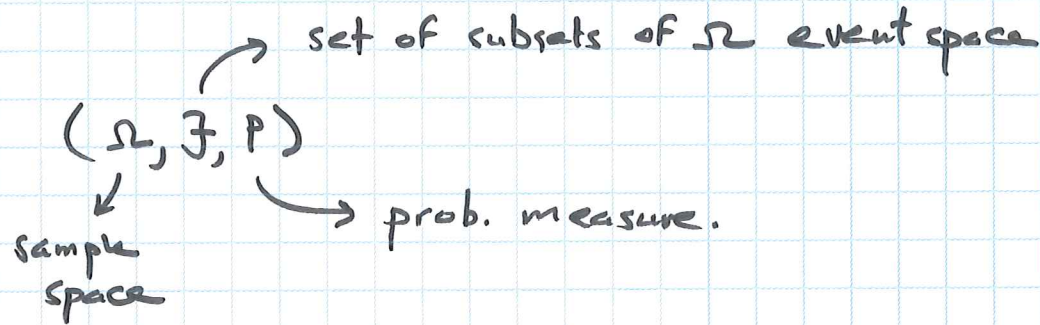 set of subsets of Ω event space
(Ω, F, P)
prob. measure.
sample
space